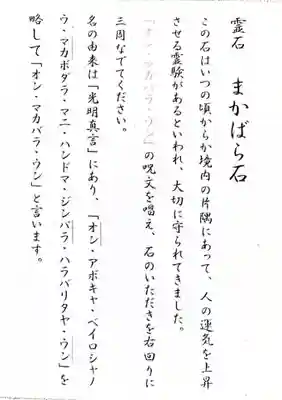 霊石　まかばら石
この石はいつの頃からか境内の片隅にあって、人の運気を上昇
させる霊験があるといわれ、大切に守られてきました。
「オン・マカバラ・ウン」の呪文を唱え、石のいただきを右回りに
三周なでてください。
名の由来は「光明真言」にあり、「オン・アボキャ・ベイロシャノ
ウ・マカボダラ・マニ・ハンドマ・ジンバラ・ハラバリタヤ・ウン」を
略して「オン・マカバラ・ウン」と言います。